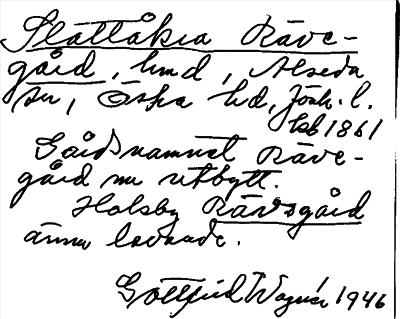 Slättåkra Räve-
gård, hmd, Alseda
sn, Östra hd, Jönk. l.
1861
Gårdsnamnet Räve-
gård nu utbytt.
Holsby Rävsgård
ännu levande.
Gottfrid Wagnér 1946